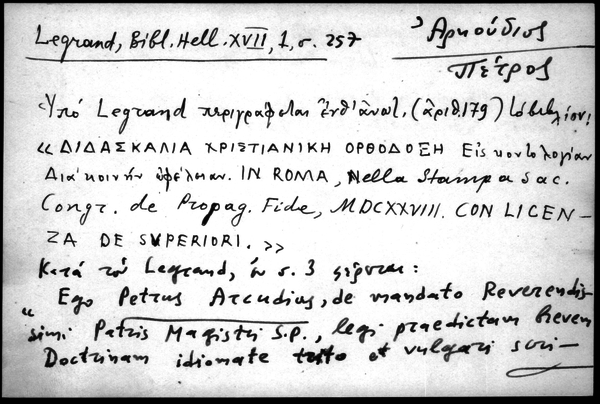 Legrand, Bibl. Hell. XVII, 1, σ. 257
Ἀρκούδιος
Πέτρος
Ὑπό Legrand περιγράφεται ἐνθ' ἀνωτ. (ἀριθ. 179) τό βιβλίον:
« ΔΙΔΑΣΚΑΛΙΑ ΧΡΙΣΤΙΑΝΙΚΗ ΟΡΘΟΔΟΞΗ Εἰς κοντολογίαν
Διά κοινήν ὠφέλειαν. IN ROMA, Nella Stampa Sac.
Congr. de Propag. Fide, MDCXXVIII. CON LICEN-
ZA DE SUPERIORI. »
Κατά τόν Legrand, ἐν σ. 3 φέρεται:
" Ego Petrus Arcudius, de mandato Reverendis-
simi Patris Magistri S.P., legi praedictam brevem
Doctrinam idiomate et vulgari scri-